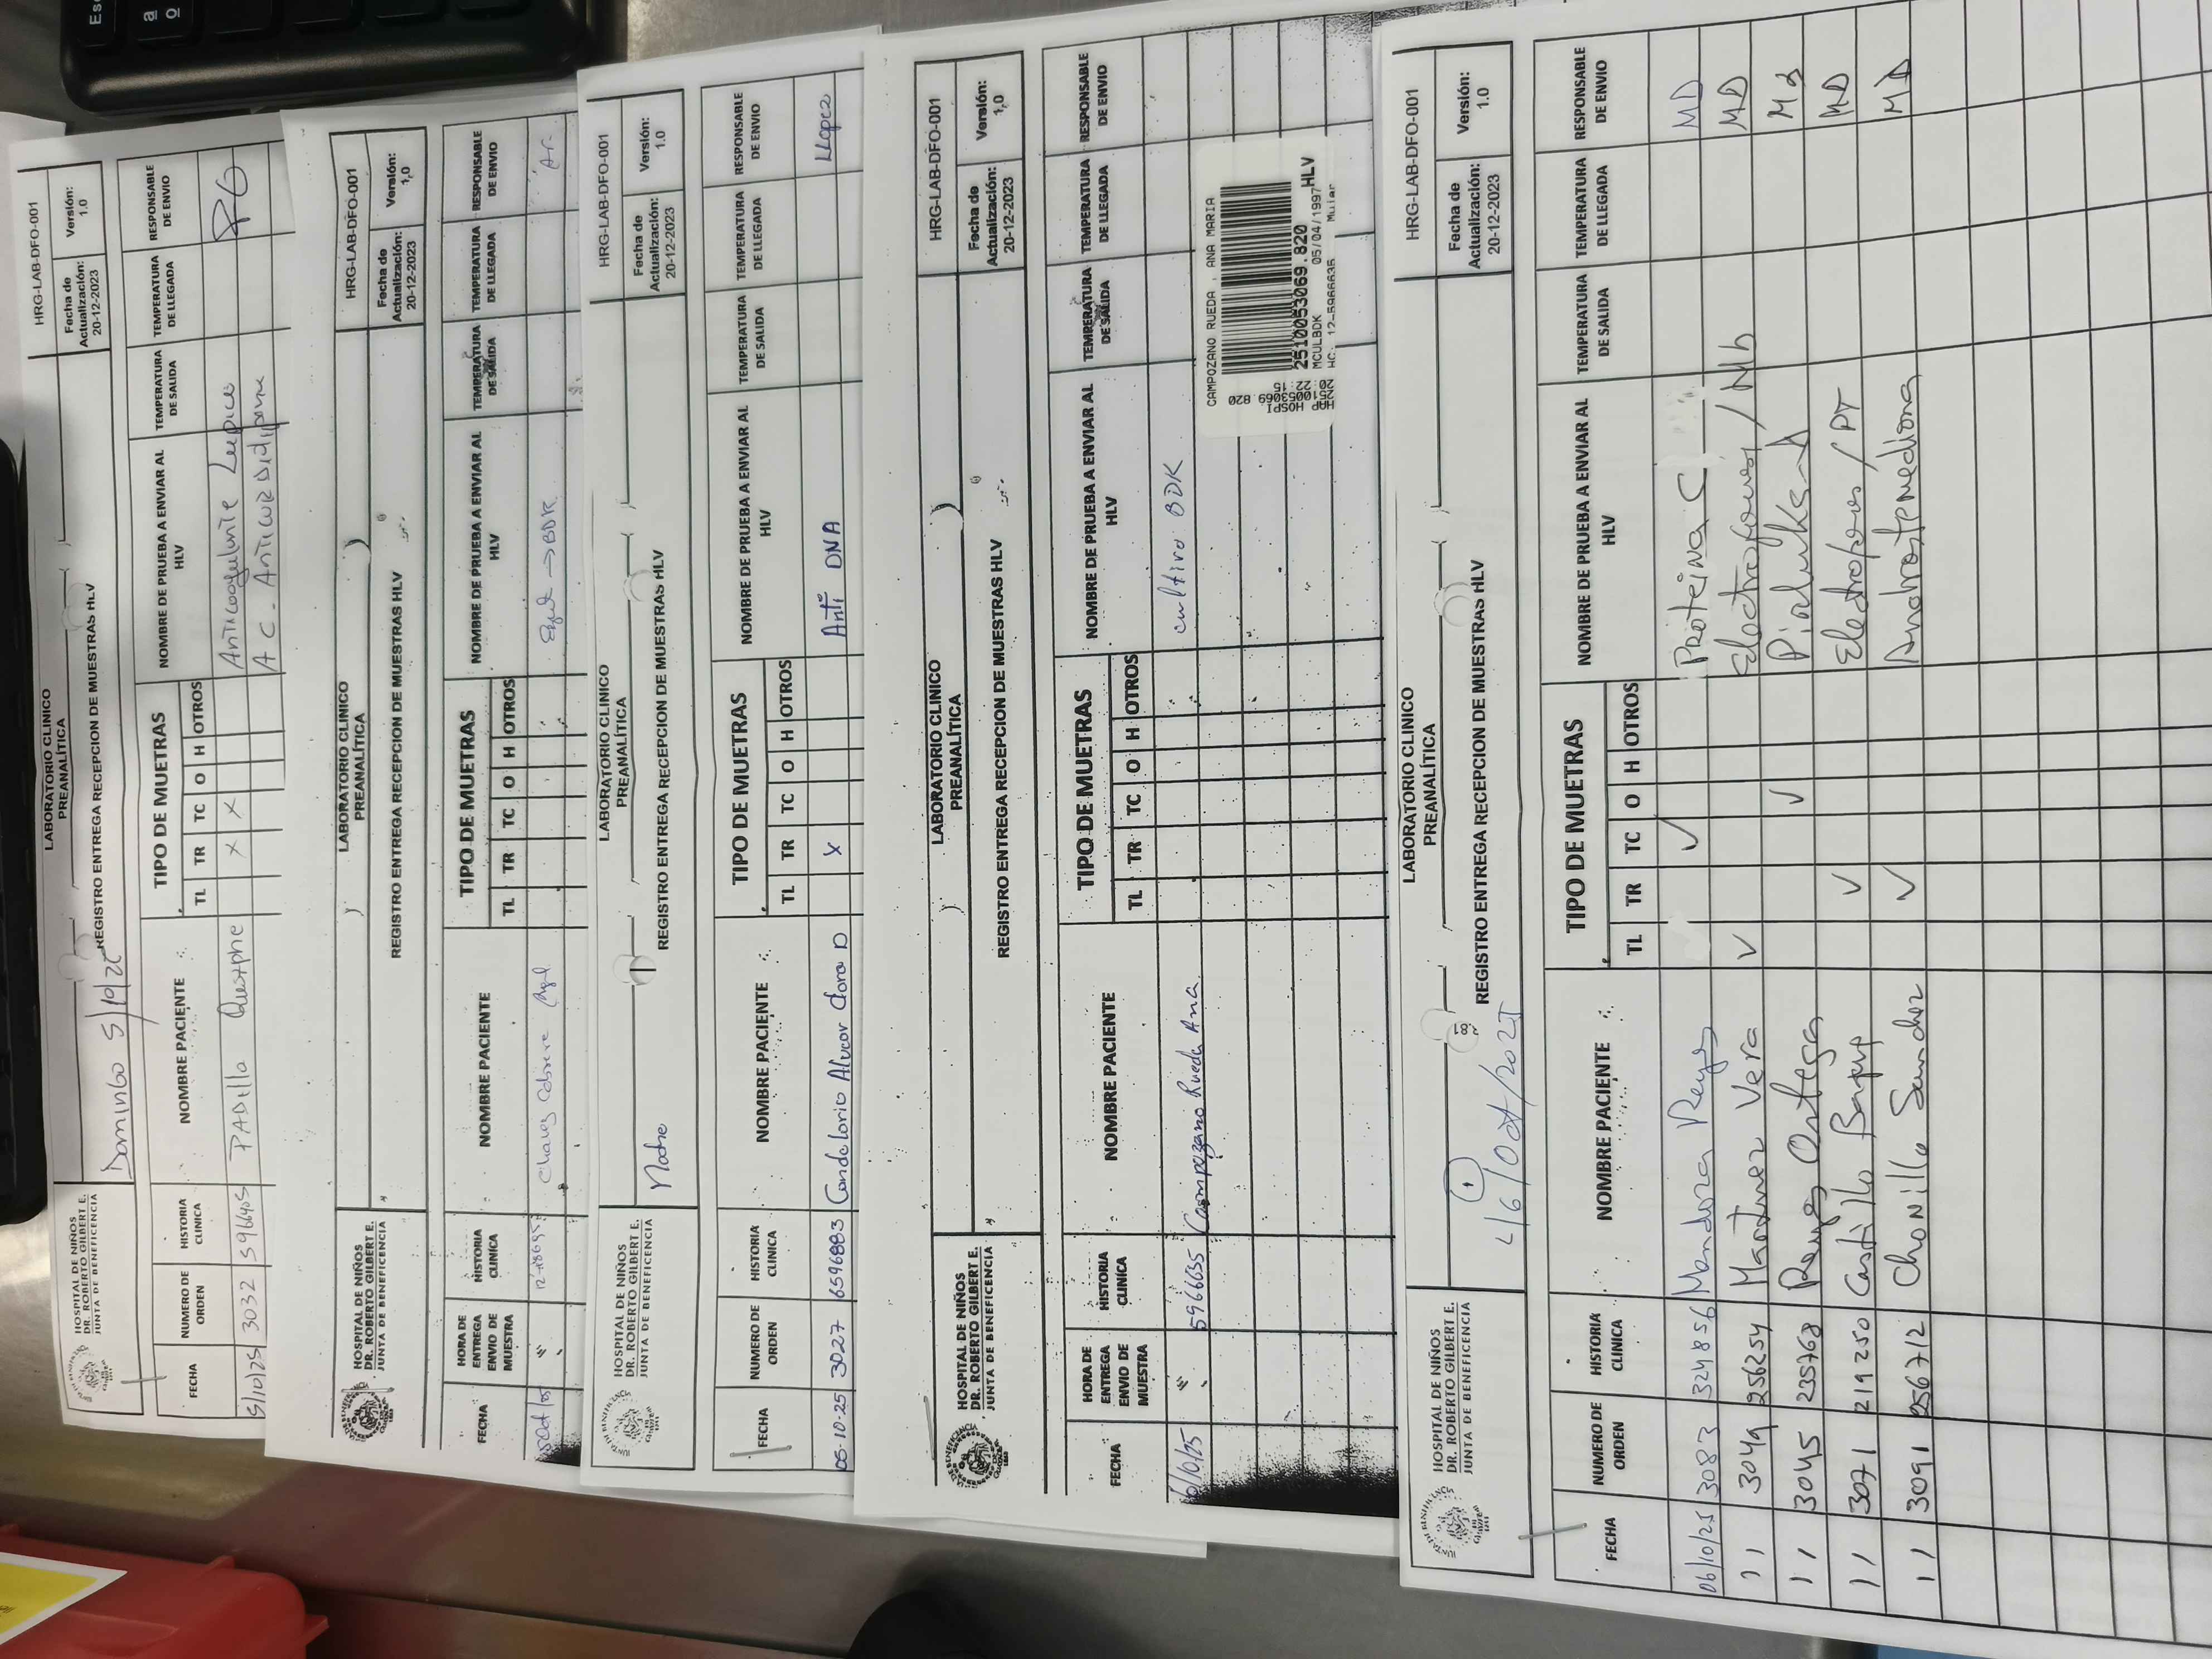 HOSPITAL DE NIÑOS
DR. ROBERTO GILBERT E.
JUNTA DE BENEFICENCIA
LABORATORIO CLINICO
PREANALÍTICA
REGISTRO ENTREGA RECEPCION DE MUESTRAS HLV
HRG-LAB-DFO-001
Fecha de Actualización: 20-12-2023
Versión: 1.0
Domingo 5/10/25
FECHA NUMERO DE ORDEN HISTORIA CLINICA NOMBRE PACIENTE TIPO DE MUETRAS NOMBRE DE PRUEBA A ENVIAR AL HLV TEMPERATURA DE SALIDA TEMPERATURA DE LLEGADA RESPONSABLE DE ENVIO
TL TR TC O H OTROS
5/10/25 3032 5966405 PADILLA X X Anticoagulante Lupico
X A C. ANTICUERP
HOSPITAL DE NIÑOS
DR. ROBERTO GILBERT E.
JUNTA DE BENEFICENCIA
LABORATORIO CLINICO
PREANALÍTICA
REGISTRO ENTREGA RECEPCION DE MUESTRAS HLV
HRG-LAB-DFO-001
Fecha de Actualización: 20-12-2023
Versión: 1,0
FECHA HORA DE ENTREGA ENVIO DE MUESTRA HISTORIA CLINICA NOMBRE PACIENTE TIPO DE MUETRAS NOMBRE DE PRUEBA A ENVIAR AL HLV TEMPERATURA DE SALIDA TEMPERATURA DE LLEGADA RESPONSABLE DE ENVIO
TL TR TC O H OTROS
→BDK
HOSPITAL DE NIÑOS
DR. ROBERTO GILBERT E.
JUNTA DE BENEFICENCIA
LABORATORIO CLINICO
PREANALÍTICA
REGISTRO ENTREGA RECEPCION DE MUESTRAS HLV
HRG-LAB-DFO-001
Fecha de Actualización: 20-12-2023
Versión: 1.0
FECHA NUMERO DE ORDEN HISTORIA CLINICA NOMBRE PACIENTE TIPO DE MUETRAS NOMBRE DE PRUEBA A ENVIAR AL HLV TEMPERATURA DE SALIDA TEMPERATURA DE LLEGADA RESPONSABLE DE ENVIO
TL TR TC O H OTROS
05-10-25 3027 6596883 Candelario X Anti DNA LLopez
HOSPITAL DE NIÑOS
DR. ROBERTO GILBERT E.
JUNTA DE BENEFICENCIA
LABORATORIO CLINICO
PREANALÍTICA
REGISTRO ENTREGA RECEPCION DE MUESTRAS HLV
HRG-LAB-DFO-001
Fecha de Actualización: 20-12-2023
Versión: 1,0
FECHA HORA DE ENTREGA ENVIO DE MUESTRA HISTORIA CLINICA NOMBRE PACIENTE TIPO DE MUETRAS NOMBRE DE PRUEBA A ENVIAR AL HLV TEMPERATURA DE SALIDA TEMPERATURA DE LLEGADA RESPONSABLE DE ENVIO
TL TR TC O H OTROS
6/10/25 5966635 Campozano Rueda Ana cultivo BDK
CAMPOZANO RUEDA , ANA MARIA
2510053069.820 HLV
MCULBDK 05/04/1997
HC. 12-5966635 Mujer
HOSPITAL DE NIÑOS
DR. ROBERTO GILBERT E.
JUNTA DE BENEFICENCIA
LABORATORIO CLINICO
PREANALÍTICA
REGISTRO ENTREGA RECEPCION DE MUESTRAS HLV
HRG-LAB-DFO-001
Fecha de Actualización: 20-12-2023
Versión: 1.0
FECHA NUMERO DE ORDEN HISTORIA CLINICA NOMBRE PACIENTE TIPO DE MUETRAS NOMBRE DE PRUEBA A ENVIAR AL HLV TEMPERATURA DE SALIDA TEMPERATURA DE LLEGADA RESPONSABLE DE ENVIO
TL TR TC O H OTROS
06/10/25 3083 324856 Mendoza Reyes ✓ Proteina C MD
11 3049 256254 Martinez Vera ✓ / Hb MD
11 3045 235768 Reyes Ortega ✓ Md
11 3071 219250 Castillo ✓ / PT MD
11 3091 256712 Chonillo Sanchez ✓ Androstenediona MD